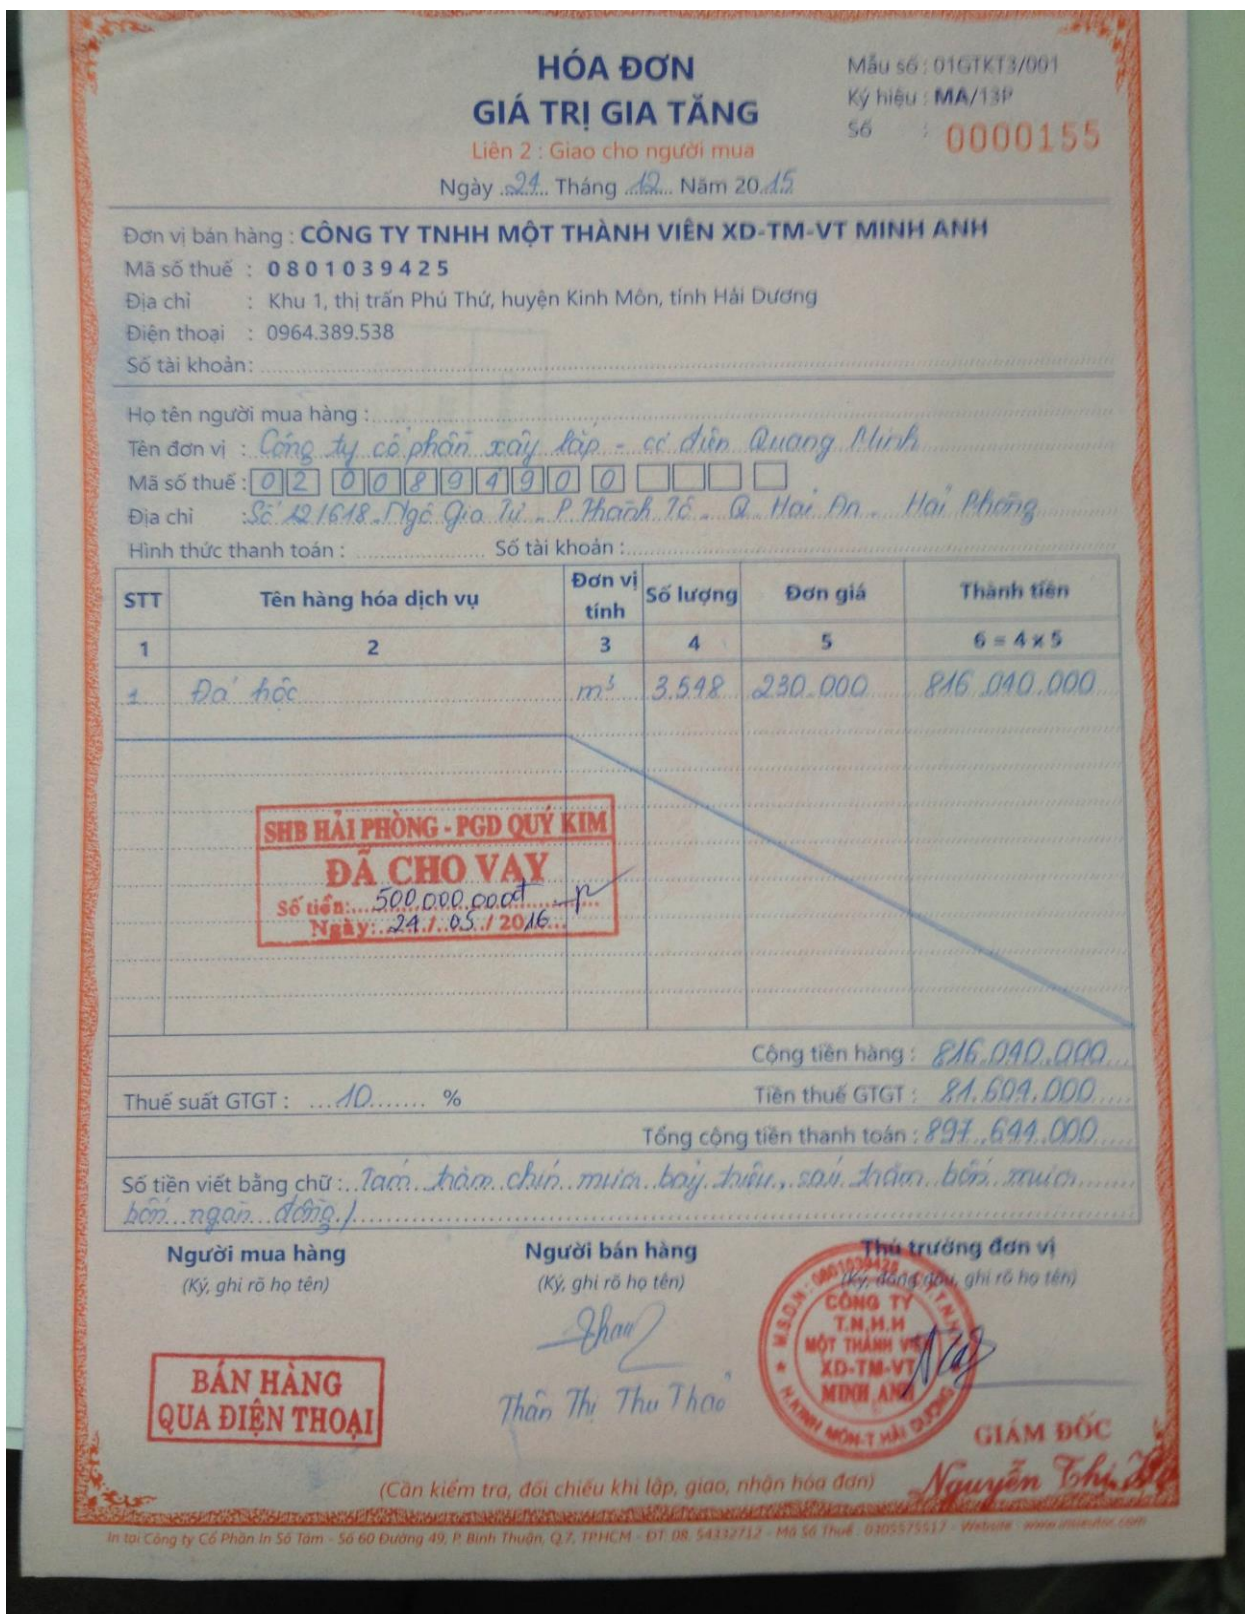 HÓA ĐƠN
GIÁ TRỊ GIA TĂNG
Liên 2 : Giao cho người mua
Ngày 24 Tháng 12 Năm 2015
Mẫu số : 01GTKT3/001
Ký hiệu : MA/13P
Số : 0000155
Đơn vị bán hàng : CÔNG TY TNHH MỘT THÀNH VIÊN XD-TM-VT MINH ANH
Mã số thuế : 0801039425
Địa chỉ : Khu 1, thị trấn Phú Thứ, huyện Kinh Môn, tỉnh Hải Dương
Điện thoại : 0964.389.538
Số tài khoản:
Họ tên người mua hàng :
Tên đơn vị : Công ty cổ phần xây lắp - cơ điện Quang Minh
Mã số thuế : 0200894900
Địa chỉ : Số 121618 Ngô Gia Tự - P. Thành Tô - Q. Hải An - Hải Phòng
Hình thức thanh toán : Số tài khoản :
STT Tên hàng hóa dịch vụ Đơn vị tính Số lượng Đơn giá Thành tiền
1 2 3 4 5 6 = 4 x 5
1 Đá hộc m³ 3.548 230.000 816.040.000
SHB HẢI PHÒNG - PGD QUÝ KIM
ĐÃ CHO VAY
Số tiền: 500.000.000đ
Ngày: 24 / 05 / 2016
Cộng tiền hàng : 816.040.000
Thuế suất GTGT : 10 % Tiền thuế GTGT : 81.604.000
Tổng cộng tiền thanh toán : 897.644.000
Số tiền viết bằng chữ : Tám trăm chín mươi bảy triệu, sáu trăm bốn mươi
bốn ngàn đồng./
Người mua hàng Người bán hàng Thủ trưởng đơn vị
(Ký, ghi rõ họ tên) (Ký, ghi rõ họ tên) (Ký, đóng dấu, ghi rõ họ tên)
M.S.D.N : 0801039425
CÔNG TY
T.N.H.H
MỘT THÀNH VIÊN
XD-TM-VT
MINH ANH
H.KINH MÔN-T.HẢI DƯƠNG
BÁN HÀNG
QUA ĐIỆN THOẠI
Thân Thị Thu Thảo
GIÁM ĐỐC
Nguyễn Thị
(Cần kiểm tra, đối chiếu khi lập, giao, nhận hóa đơn)
In tại Công ty Cổ Phần In Số Tám - Số 60 Đường 49, P. Bình Thuận, Q.7, TP.HCM - ĐT: 08. 54332712 - Mã Số Thuế : 0305575517 - Website :